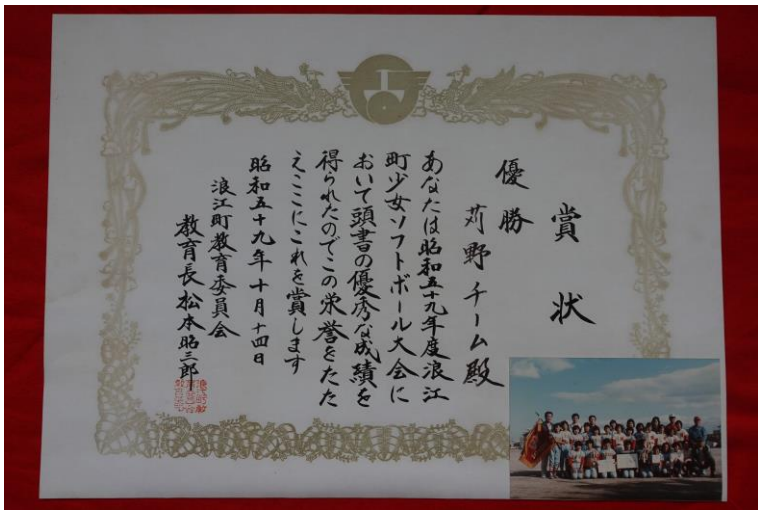 賞状
優勝
苅野チーム殿
あなたは昭和五十九年度浪江
町少女ソフトボール大会に
おいて頭書の優秀な成績を
得られたのでこの栄誉をたた
えここにこれを賞します
昭和五十九年十月十四日
浪江町教育委員会
教育長松本昭三郎